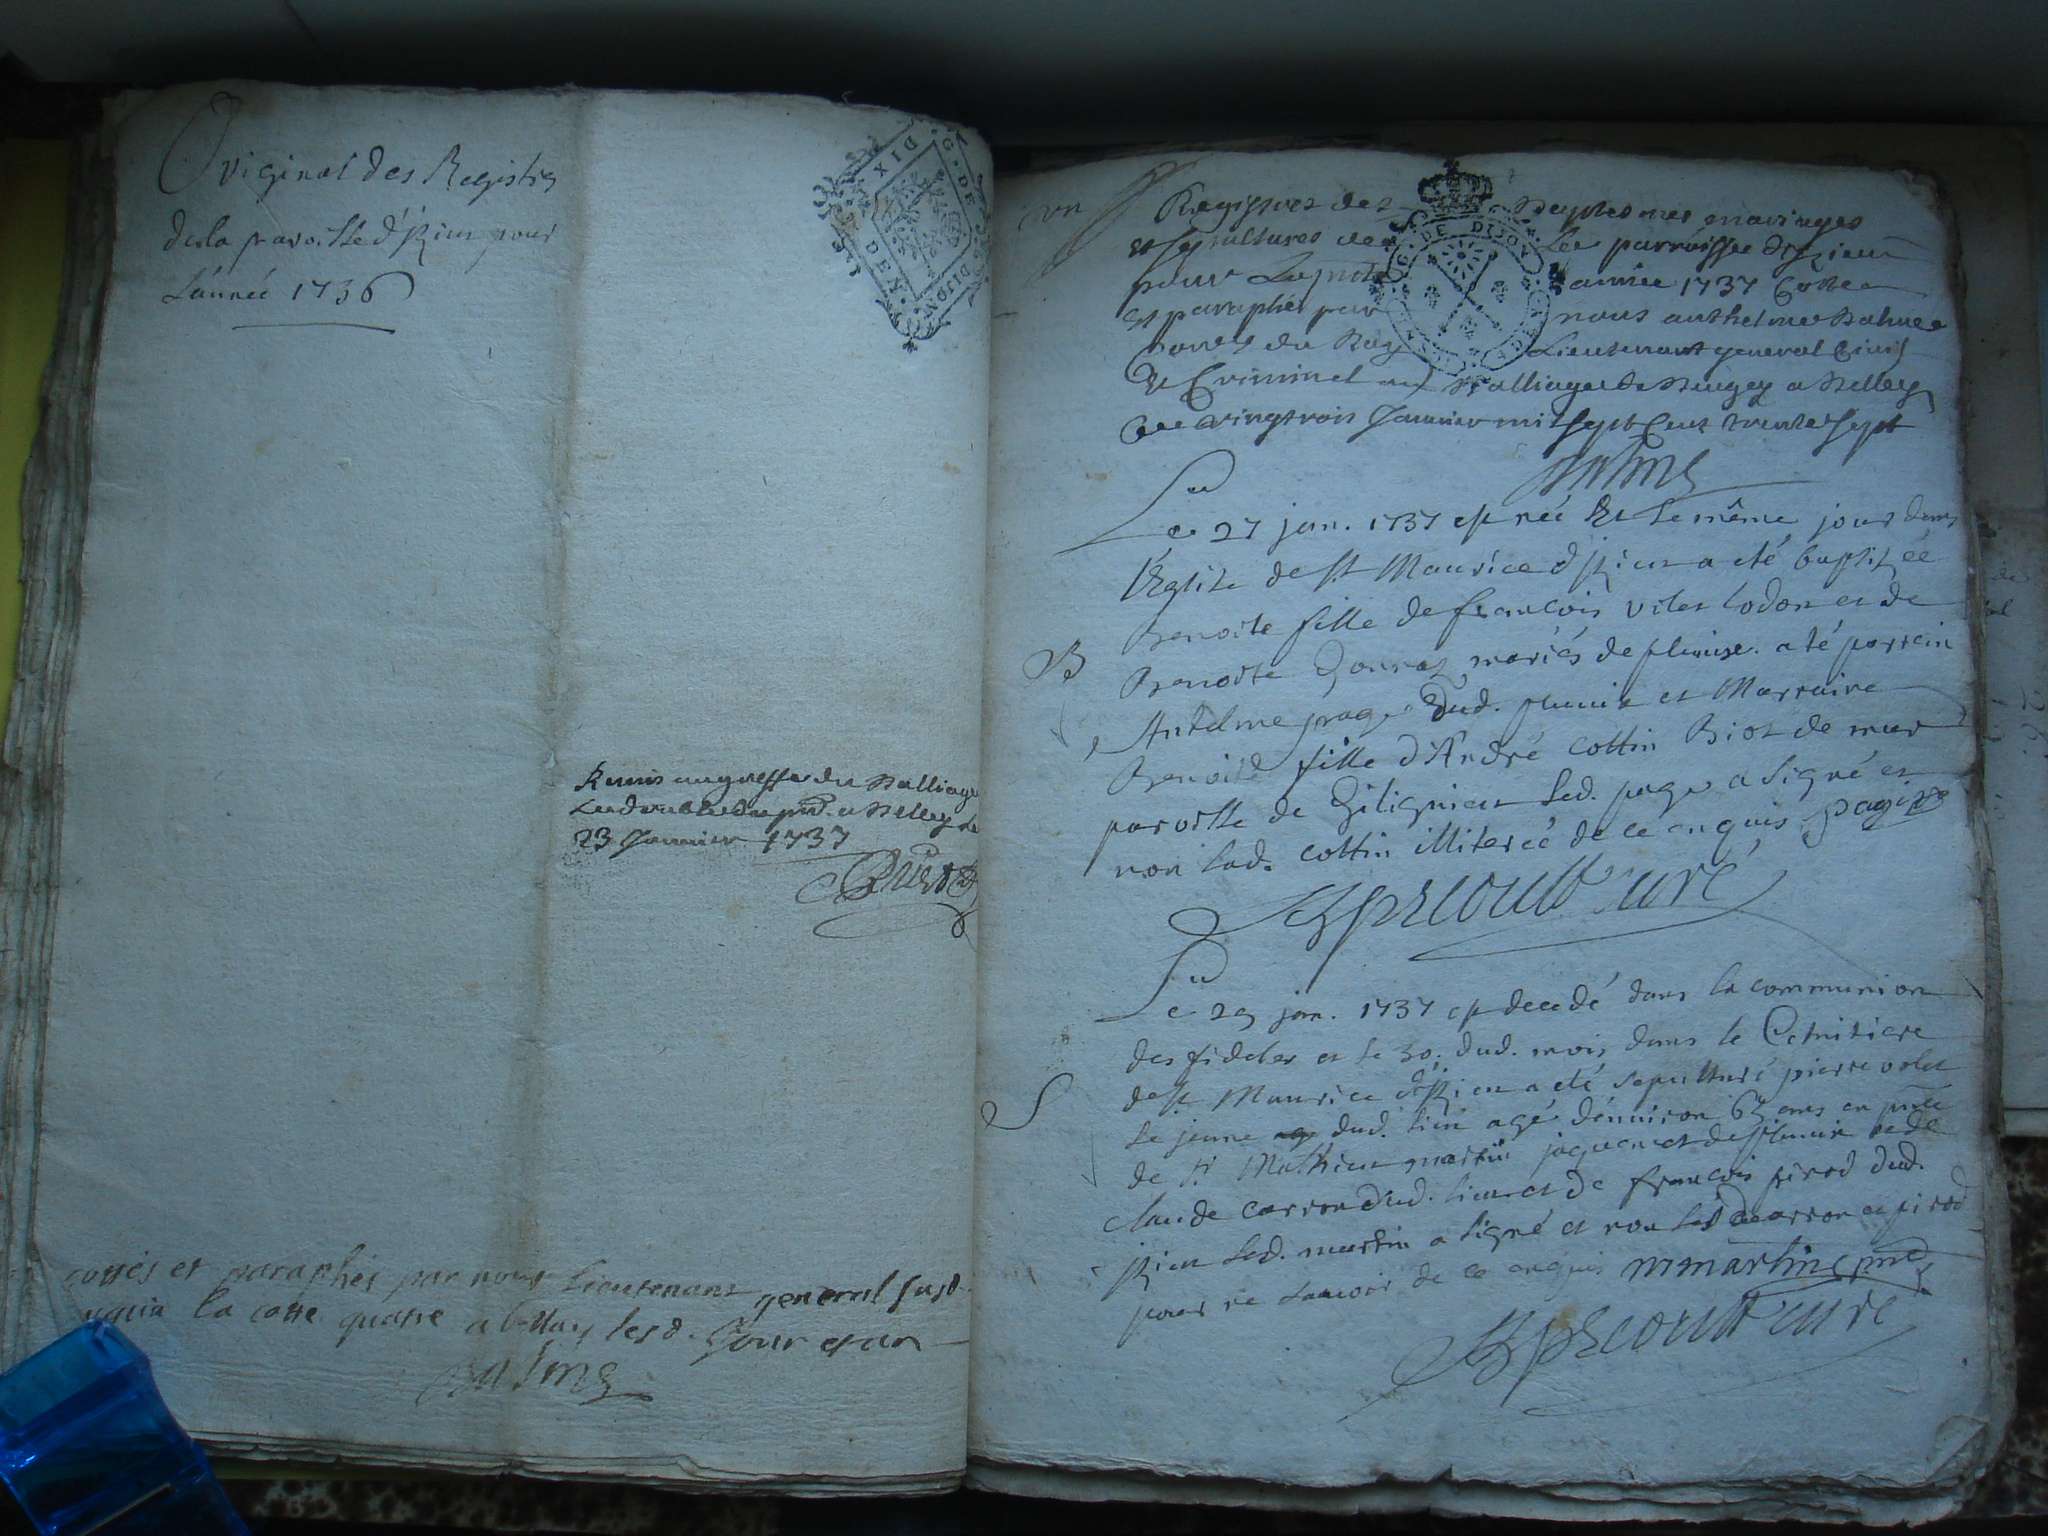 Original des Registres
de la paroisse d'Izieu pour
L'année 1736
G. DE DIJON
DIX DEN.
Remis au greffe du Balliage
Le double du pnt. a Belley Le
23 Janvier 1737
cottés et paraphés par nous Lieutenant general susd.
la cotte quatre a Belley lesd. Jour et an
Balme
un
Registres des Baptesmes mariages
et sepultures de La parroisse d'Izieu
pour La pnte année 1737 Cottés
et paraphés par nous anthelme Balme
du Bug Lieutenant general Civil
et Criminel au Balliage de Bugey a Belley
Ce vingt trois Janvier mil sept Cent trente sept
Balme
G. DE DIJON
Le 27 jan. 1737 est née et le même jour dans
l'Eglise de st Maurice d'Izieu a eté baptizée
Benoite fille de francois volet lodon et de
B
Benoite mariés de plunise. a té parrein
Antelme page dud. et Marraine
Benoite fille d'André cottin Biot de mur
paroisse de led. page a signé et
non lad. cottin illiterée de ce enquis page
curé
Le 29 jan. 1737 est decedé dans la communion
des fideles et le 30. dud. mois dans le Cemitiere
de st Maurice d'Izieu a eté sepulturé pierre volet
S
le jeune dud. lieu agé d'environ 63 ans en pnce
de sr Mathieu martin et de
claude carron dud. lieu et de francois pirod dud.
Izieu led. martin a signé et non lesd carron et pirod
pour ne scavoir de ce enquis m martin pnt
curé